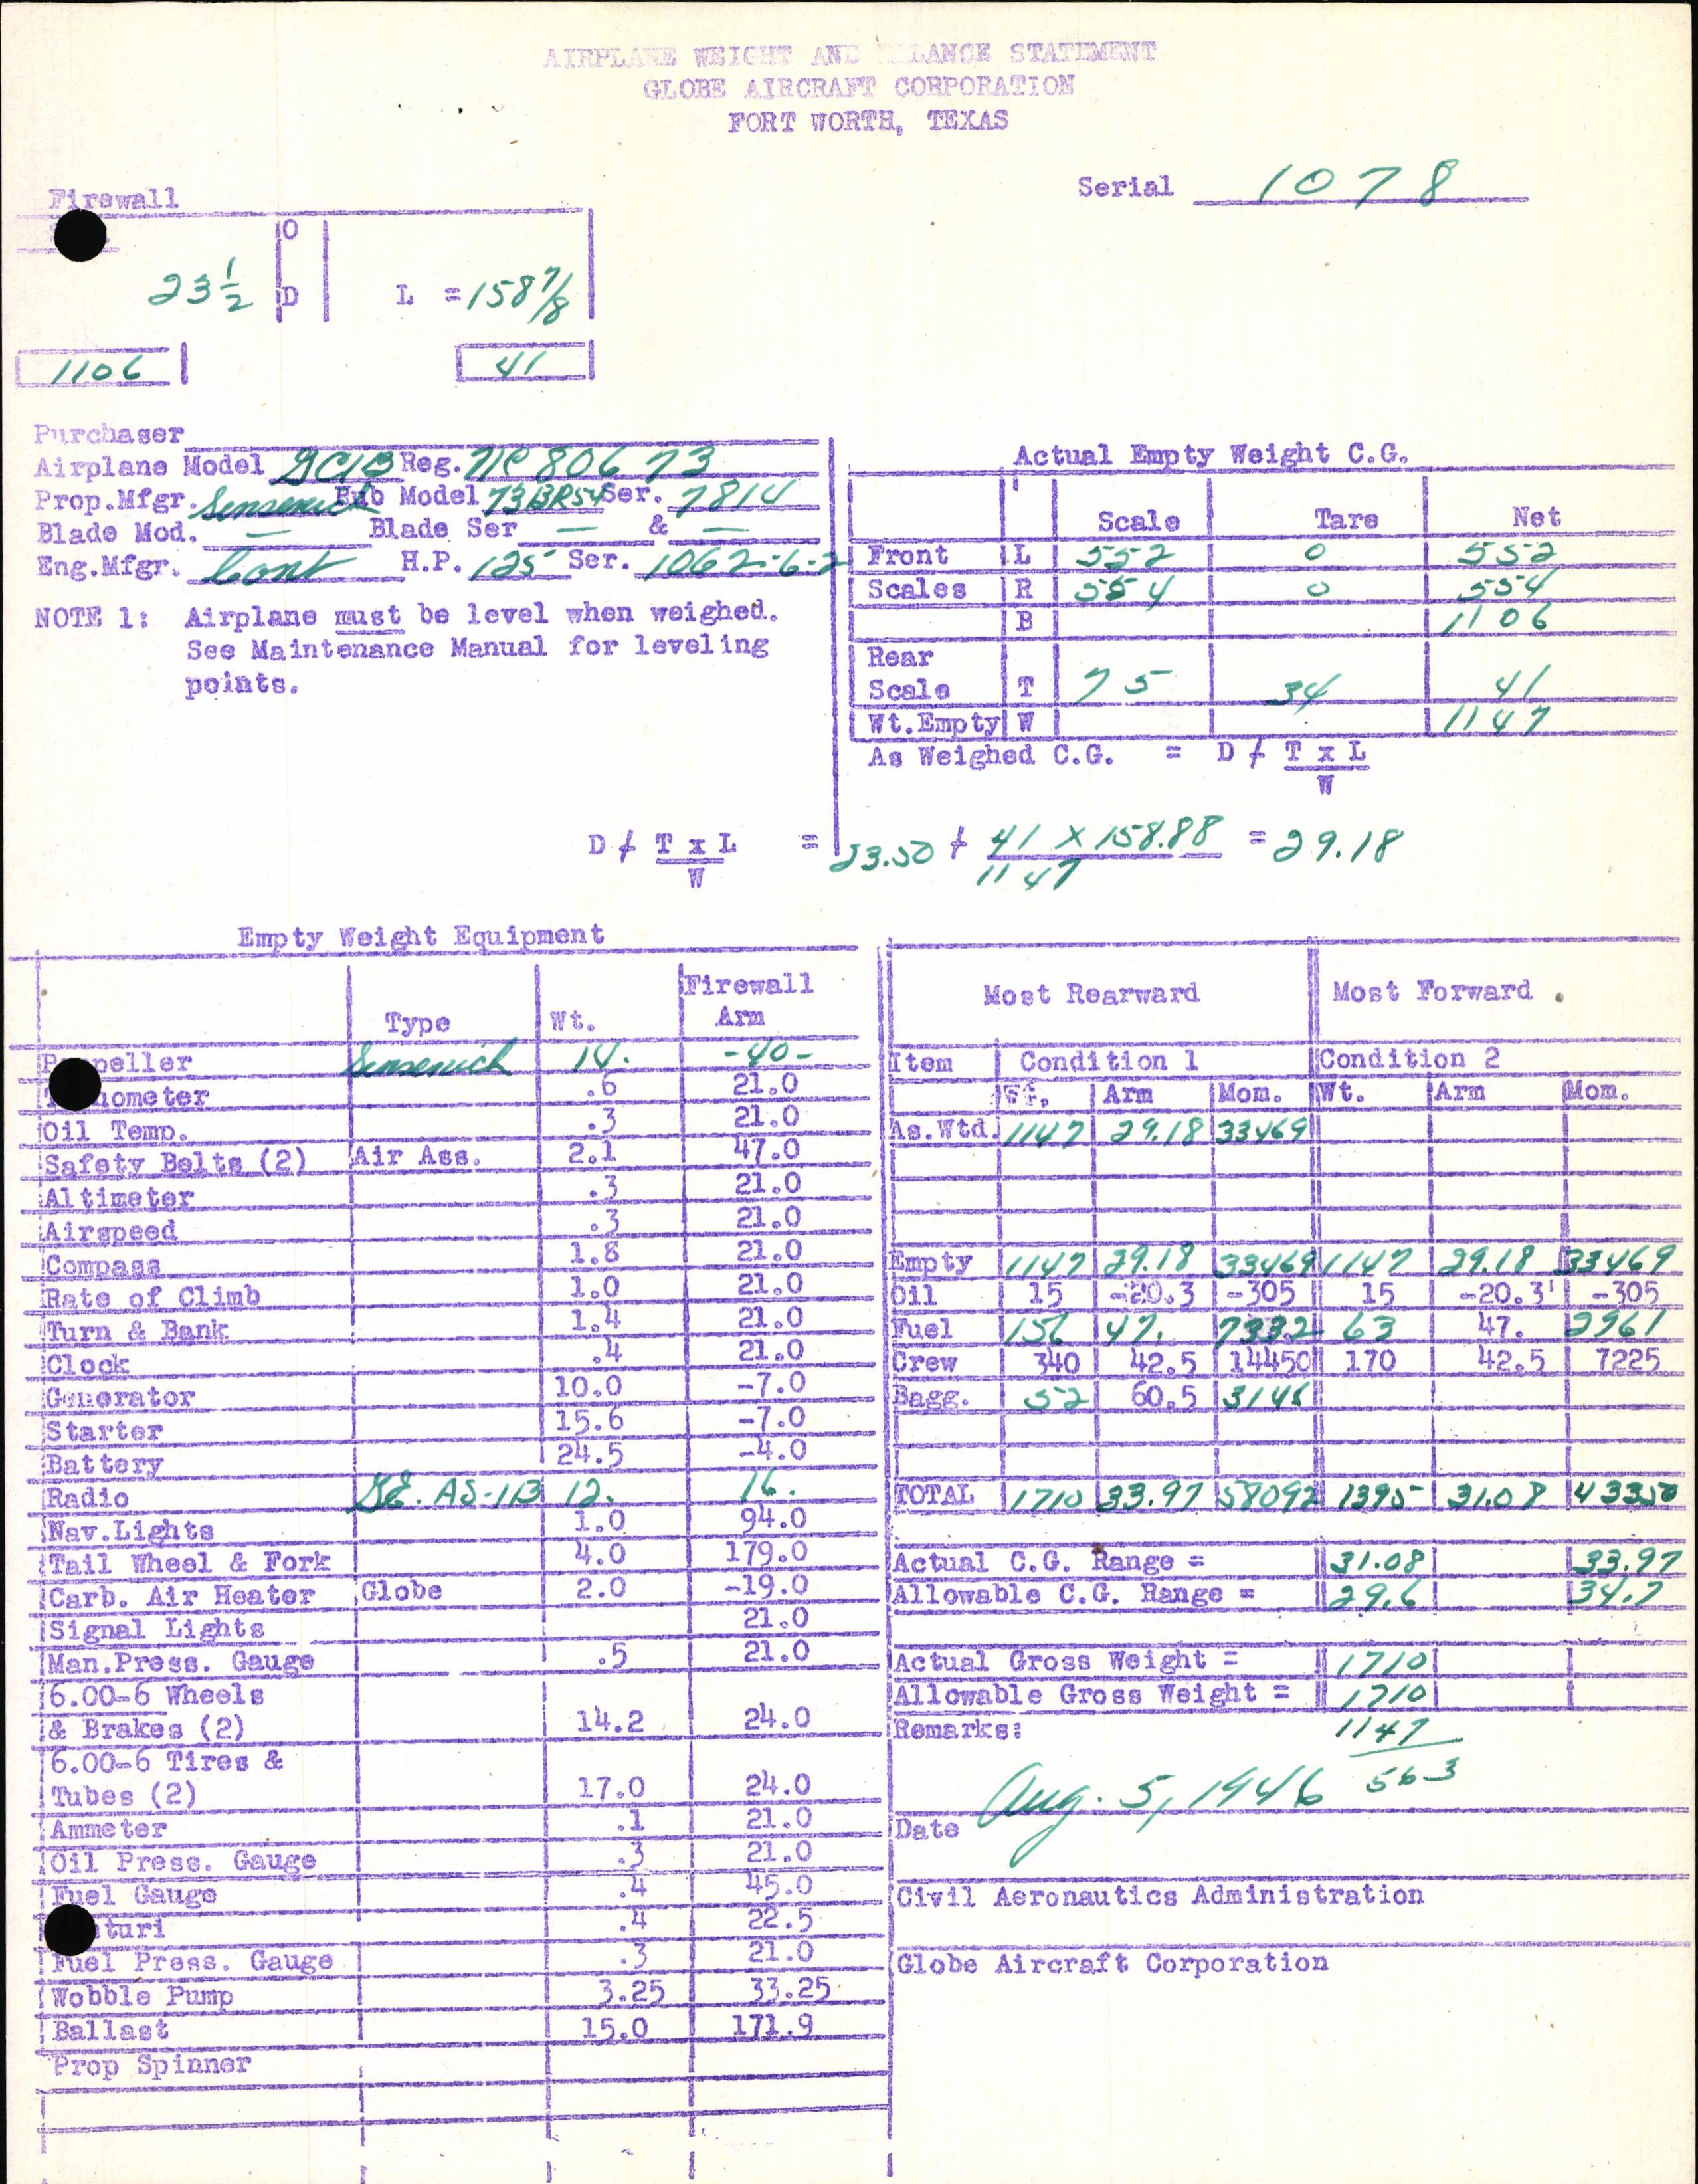 AIRPLANE WEIGHT AND BALANCE STATEMENT
GLOBE AIRCRAFT CORPORATION
FORT WORTH, TEXAS
Serial 1078
Firewall
O
23 1/2 D L = 158 7/8
1106 41
Purchaser
Airplane Model GC1B Reg. NC 80673
Prop.Mfgr. Sensenich Hub Model 73BR54 Ser. 7814
Blade Mod. — Blade Ser — & —
Eng.Mfgr. Cont H.P. 125 Ser. 1062-6-2
NOTE 1: Airplane must be level when weighed.
See Maintenance Manual for leveling
points.
Actual Empty Weight C.G.
Scale Tare Net
Front L 552 0 552
Scales R 554 0 554
B 1106
Rear
Scale T 75 34 41
Wt.Empty W 1147
As Weighed C.G. = D + T x L
W
D + T x L = 23.50 + 41 X 158.88 = 29.18
W 1147
Empty Weight Equipment
Type Wt. Firewall
Arm
Propeller Sensenich 14. -40-
Tachometer .6 21.0
Oil Temp. .3 21.0
Safety Belts (2) Air Ass. 2.1 47.0
Altimeter .3 21.0
Airspeed .3 21.0
Compass 1.8 21.0
Rate of Climb 1.0 21.0
Turn & Bank 1.4 21.0
Clock .4 21.0
Generator 10.0 -7.0
Starter 15.6 -7.0
Battery 24.5 -4.0
Radio G.E. AS-1B 12. 16.
Nav.Lights 1.0 94.0
Tail Wheel & Fork 4.0 179.0
Carb. Air Heater Globe 2.0 -19.0
Signal Lights 21.0
Man.Press. Gauge .5 21.0
6.00-6 Wheels
& Brakes (2) 14.2 24.0
6.00-6 Tires &
Tubes (2) 17.0 24.0
Ammeter .1 21.0
Oil Press. Gauge .3 21.0
Fuel Gauge .4 45.0
Venturi .4 22.5
Fuel Press. Gauge .3 21.0
Wobble Pump 3.25 33.25
Ballast 15.0 171.9
Prop Spinner
Most Rearward Most Forward
Item Condition 1 Condition 2
Wt. Arm Mom. Wt. Arm Mom.
As.Wtd. 1147 29.18 33469
Empty 1147 29.18 33469 1147 29.18 33469
Oil 15 -20.3 -305 15 -20.3 -305
Fuel 156 47. 7332 63 47. 2961
Crew 340 42.5 14450 170 42.5 7225
Bagg. 52 60.5 3146
TOTAL 1710 33.97 58092 1395 31.08 43350
Actual C.G. Range = 31.08 33.97
Allowable C.G. Range = 29.6 34.7
Actual Gross Weight = 1710
Allowable Gross Weight = 1710
Remarks: 1147
563
Date Aug. 5, 1946
Civil Aeronautics Administration
Globe Aircraft Corporation